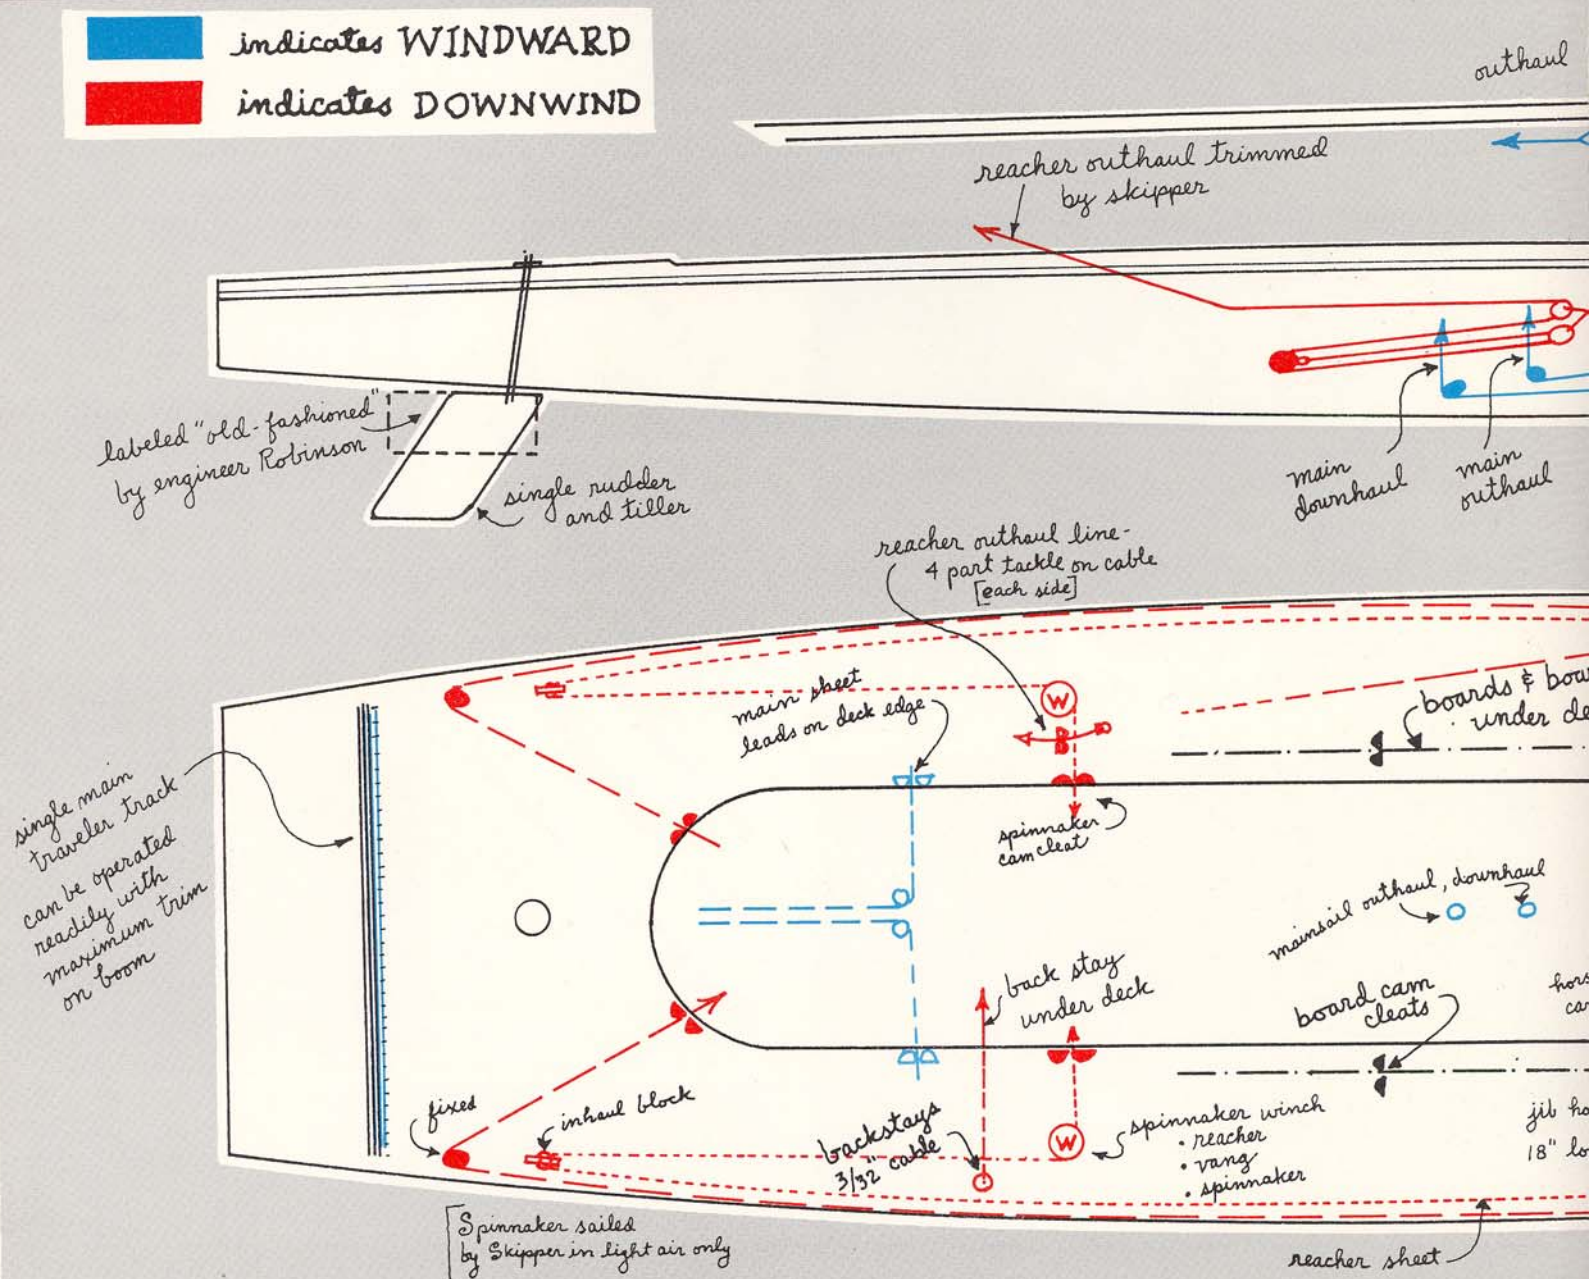 indicates WINDWARD
indicates DOWNWIND
outhaul
reacher outhaul trimmed
by skipper
labeled "old-fashioned"
by engineer Robinson
single rudder
and tiller
main
downhaul
main
outhaul
reacher outhaul line-
4 part tackle on cable
[each side]
main sheet
leads on deck edge
boards & boa
under de
W
spinnaker
cam cleat
single main
traveler track
can be operated
readily with
maximum trim
on boom
mainsail outhaul, downhaul
back stay
under deck
board cam
cleats
hors
ca
fixed
inhaul block
backstays
3/32" cable
W
spinnaker winch
• reacher
• vang
• spinnaker
jib ho
18" lo
[Spinnaker sailed
by Skipper in light air only
reacher sheet